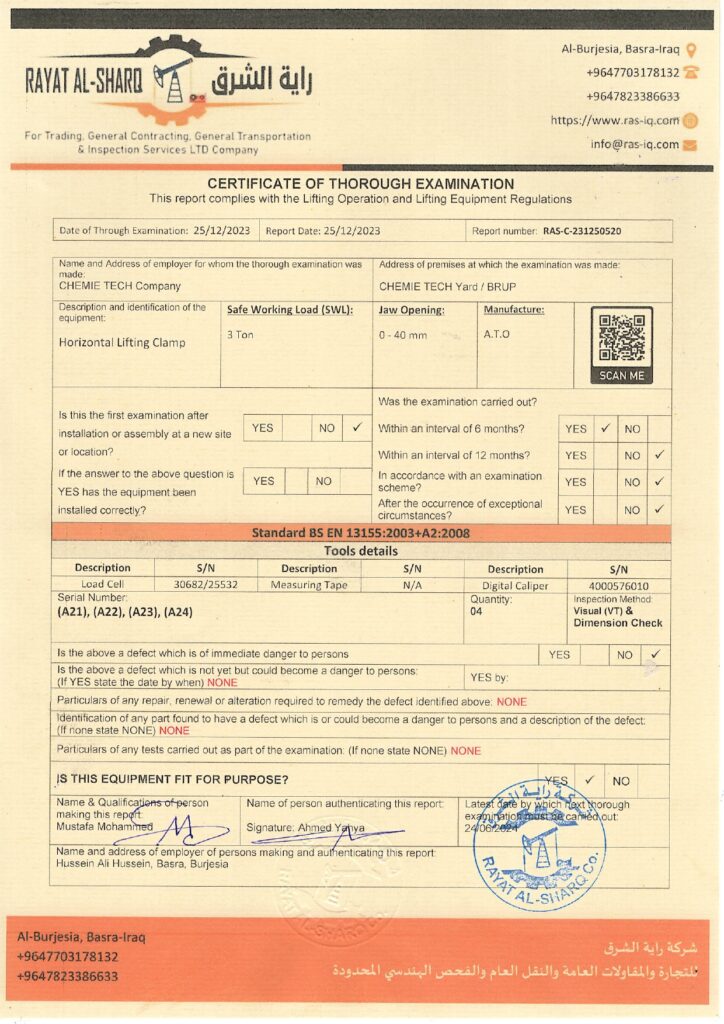 RAYAT AL-SHARQ راية الشرق
For Trading, General Contracting, General Transportation
& Inspection Services LTD Company
Al-Burjesia, Basra-Iraq
+9647703178132
+9647823386633
https://www.ras-iq.com
info@ras-iq.com
CERTIFICATE OF THOROUGH EXAMINATION
This report complies with the Lifting Operation and Lifting Equipment Regulations
Date of Through Examination: 25/12/2023 Report Date: 25/12/2023 Report number: RAS-C-231250520
Name and Address of employer for whom the thorough examination was
made:
CHEMIE TECH Company
Address of premises at which the examination was made:
CHEMIE TECH Yard / BRUP
Description and identification of the
equipment:
Horizontal Lifting Clamp
Safe Working Load (SWL):
3 Ton
Jaw Opening:
0 - 40 mm
Manufacture:
A.T.O
SCAN ME
Is this the first examination after
installation or assembly at a new site
or location?
YES NO ✓
If the answer to the above question is
YES has the equipment been
installed correctly?
YES NO
Was the examination carried out?
Within an interval of 6 months? YES ✓ NO
Within an interval of 12 months? YES NO ✓
In accordance with an examination
scheme?
YES NO ✓
After the occurrence of exceptional
circumstances?
YES NO ✓
Standard BS EN 13155:2003+A2:2008
Tools details
Description S/N Description S/N Description S/N
Load Cell 30682/25532 Measuring Tape N/A Digital Caliper 4000576010
Serial Number:
(A21), (A22), (A23), (A24)
Quantity:
04
Inspection Method:
Visual (VT) &
Dimension Check
Is the above a defect which is of immediate danger to persons YES NO ✓
Is the above a defect which is not yet but could become a danger to persons:
(If YES state the date by when) NONE
YES by:
Particulars of any repair, renewal or alteration required to remedy the defect identified above: NONE
Identification of any part found to have a defect which is or could become a danger to persons and a description of the defect:
(If none state NONE) NONE
Particulars of any tests carried out as part of the examination: (If none state NONE) NONE
IS THIS EQUIPMENT FIT FOR PURPOSE? YES ✓ NO
Name & Qualifications of person
making this report:
Mustafa Mohammed
Name of person authenticating this report:
Signature: Ahmed Yahya
Latest date by which next thorough
examination must be carried out:
24/06/2024
شركة راية الشرق
RAYAT AL-SHARQ Co.
Name and address of employer of persons making and authenticating this report:
Hussein Ali Hussein, Basra, Burjesia
Al-Burjesia, Basra-Iraq
+9647703178132
+9647823386633
شركة راية الشرق
للتجارة والمقاولات العامة والنقل العام والفحص الهندسي المحدودة